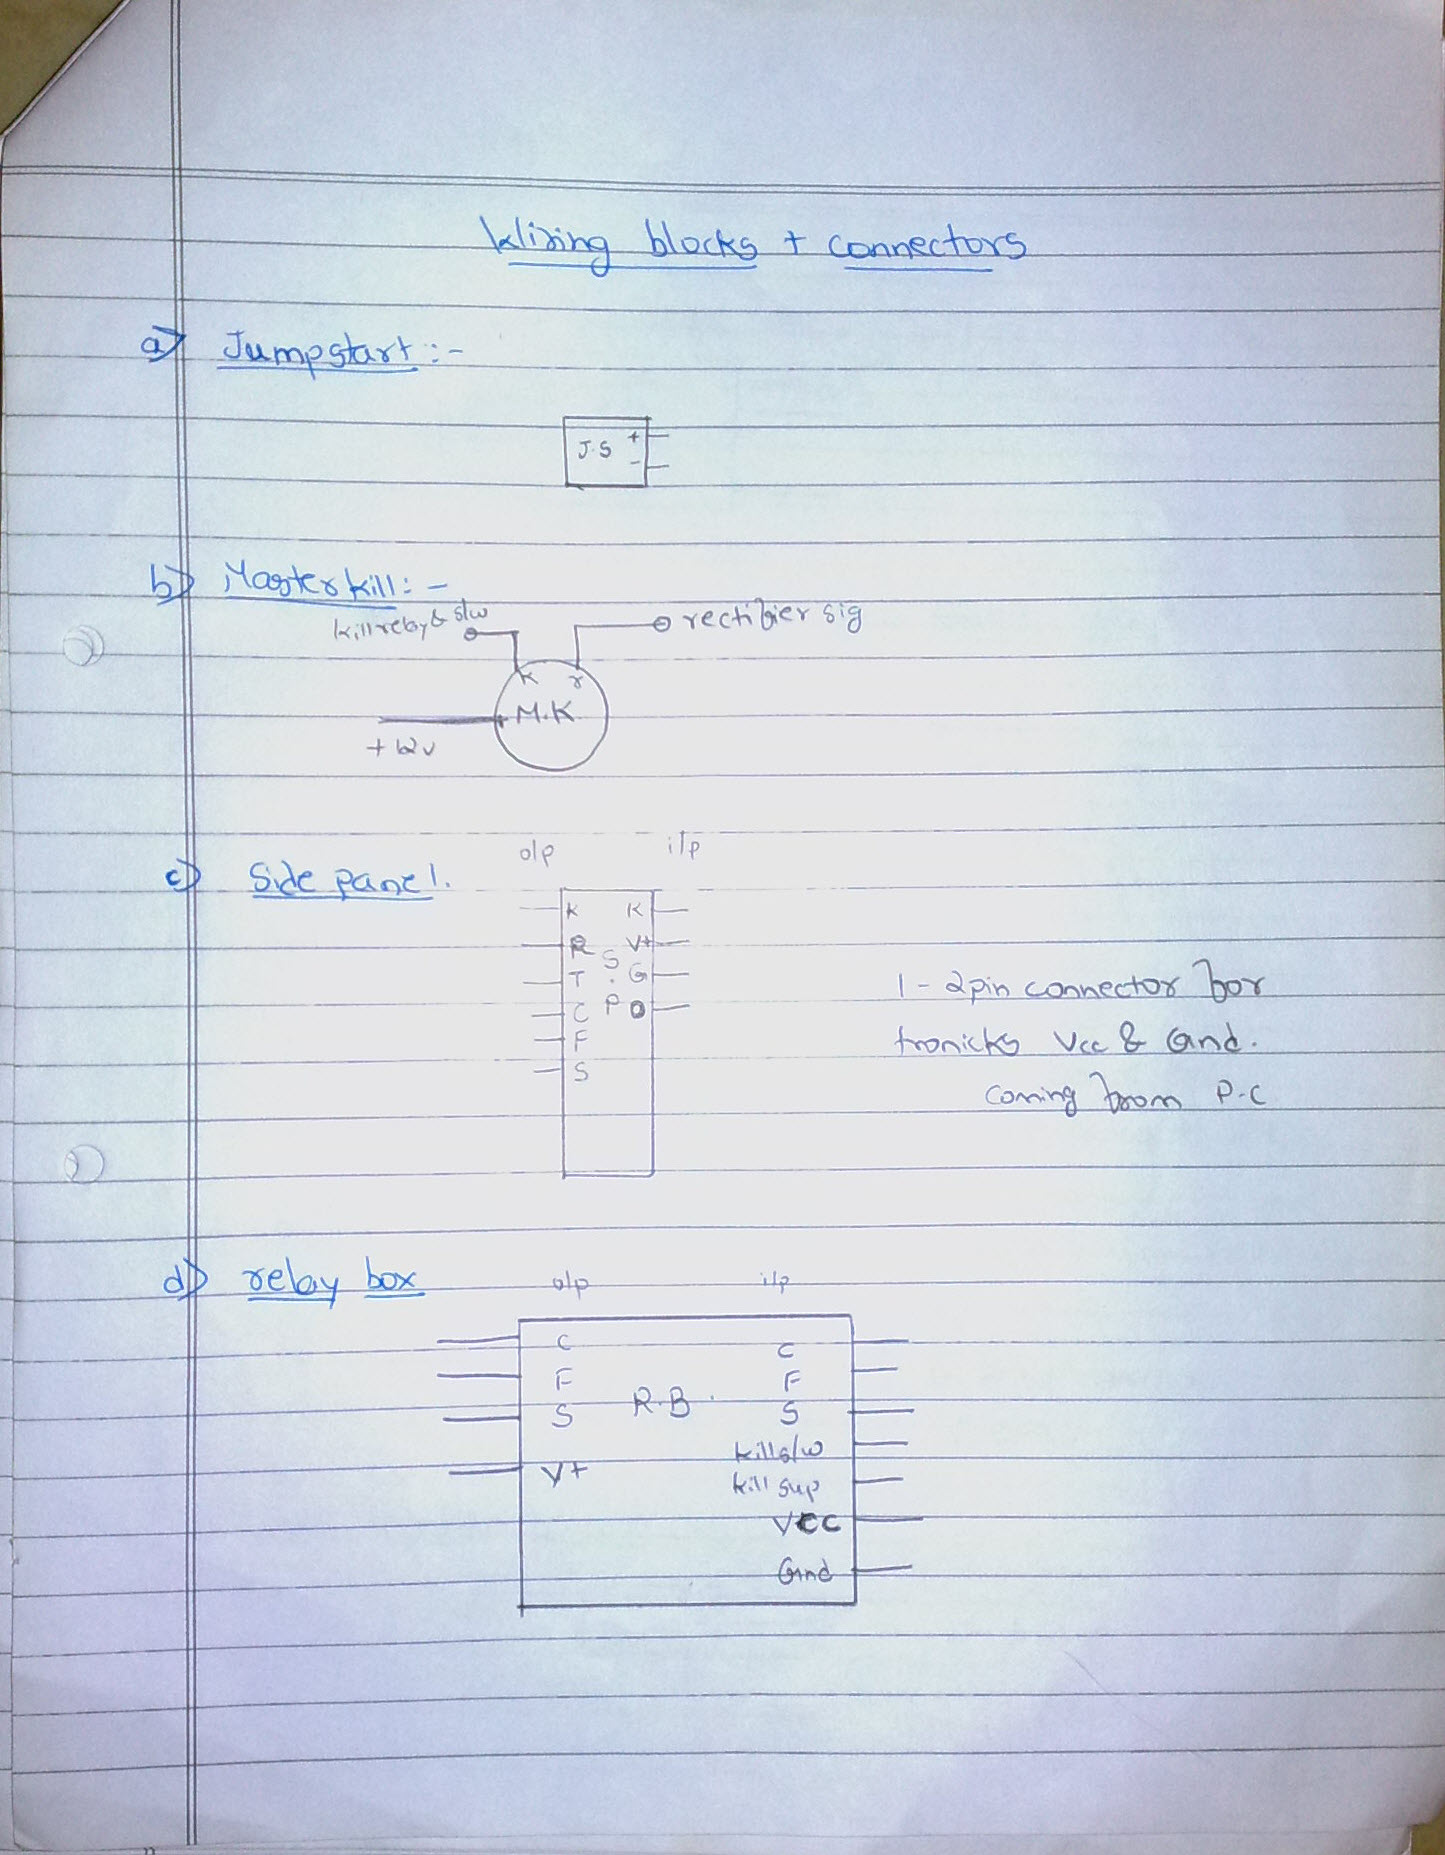 Wiring blocks + connectors
a) Jumpstart :-
J.S +
-
b) Master kill: -
kill relay & s/w
rectifier sig
K r
+ M.K
+12v
o/p i/p
c) Side panel.
K K
R V+
S
T . G
C P O
F
S
1 - 2pin connector for
tronicks Vcc & Gnd.
coming from P.C
d) relay box
o/p i/p
C C
F F
R.B.
S S
kill s/w
V+
kill sup
VCC
Gnd